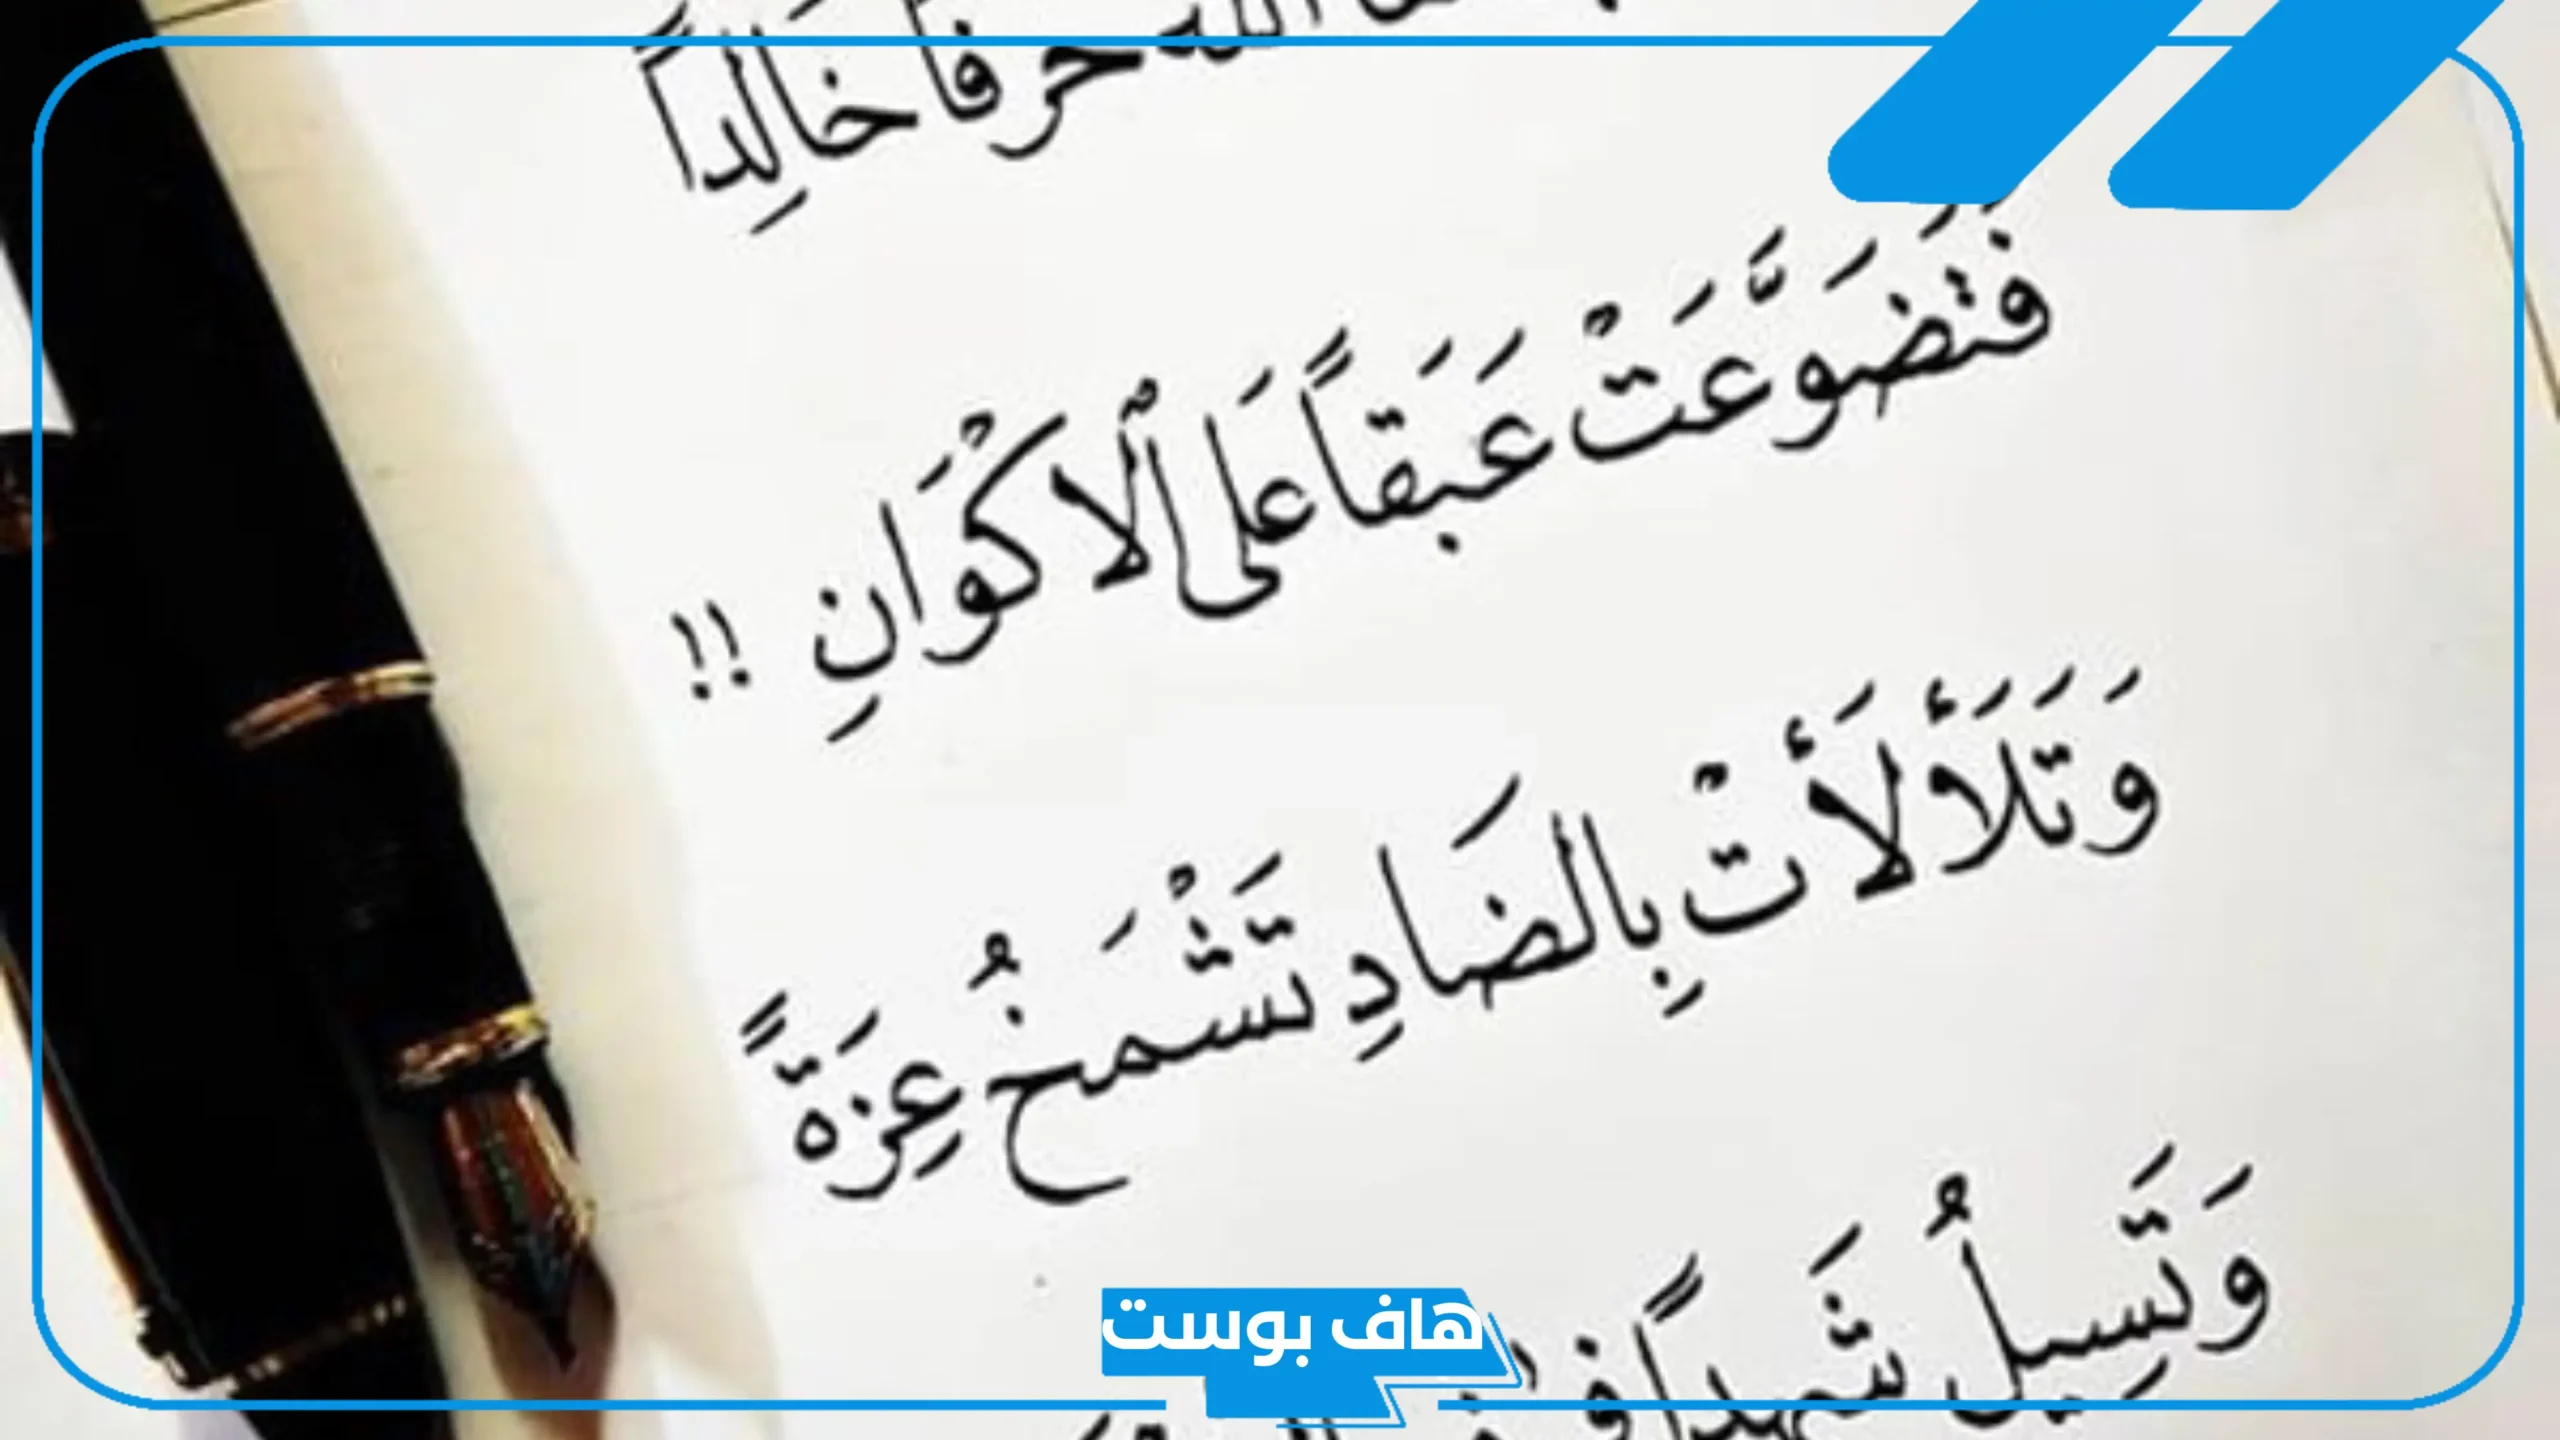 الله حرفاً خالِداً
فَتَضَوَّعَتْ عَبَقاً عَلى ٱلْاكْوَانِ !!
وَتَلَأْلَأَتْ بِالضَادِ تَشْمَخُ عِزَةً
وَتَسِيلُ شَهداً
هاف بوست